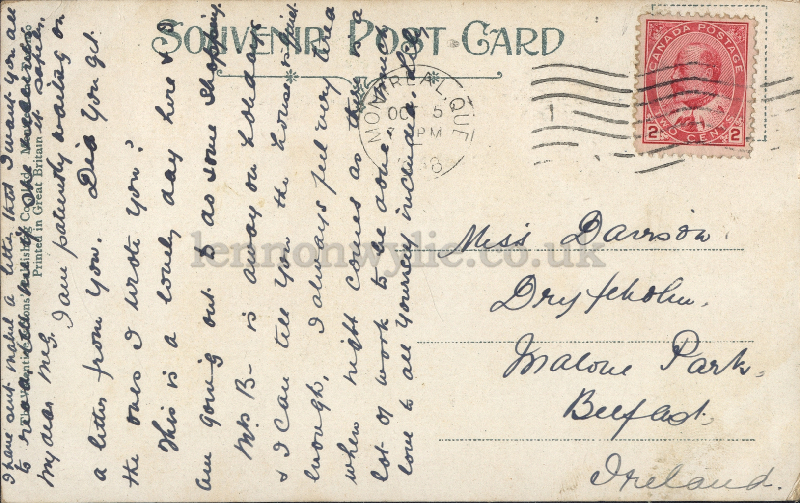 SOUVENIR POST CARD
CANADA POSTAGE
2 TWO CENTS 2
MONTREAL, QUE
OCT 5
PM
Miss Davison
Malone Park,
Belfast,
Ireland.
lennonwylie.co.uk
Printed in Great Britain
I have sent Mabel a letter that I want you all
to read
My dear Meg.
I am patiently waiting on
a letter from you. Did you get
the ones I wrote you?
This is a lovely day here & I
am going out to do some shopping.
Mrs B— is away on holidays
& I can tell you the house is quiet
enough. I always feel very tired
when night comes as there is a
lot of work to be done. Much
love to all yourself included.